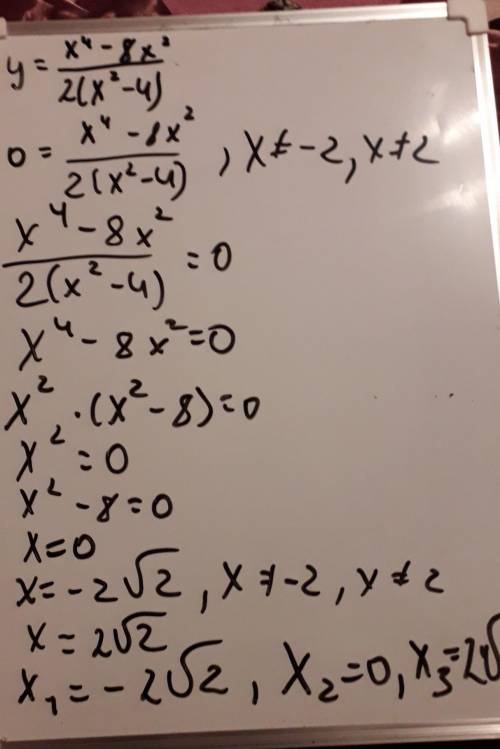 y = (x⁴ - 8x²)/(2(x² - 4))
0 = (x⁴ - 8x²)/(2(x² - 4)), x ≠ -2, x ≠ 2
(x⁴ - 8x²)/(2(x² - 4)) = 0
x⁴ - 8x² = 0
x² · (x² - 8) = 0
x² = 0
x² - 8 = 0
x = 0
x = -2√2, x ≠ -2, x ≠ 2
x = 2√2
x₁ = -2√2, x₂ = 0, x₃ = 2√